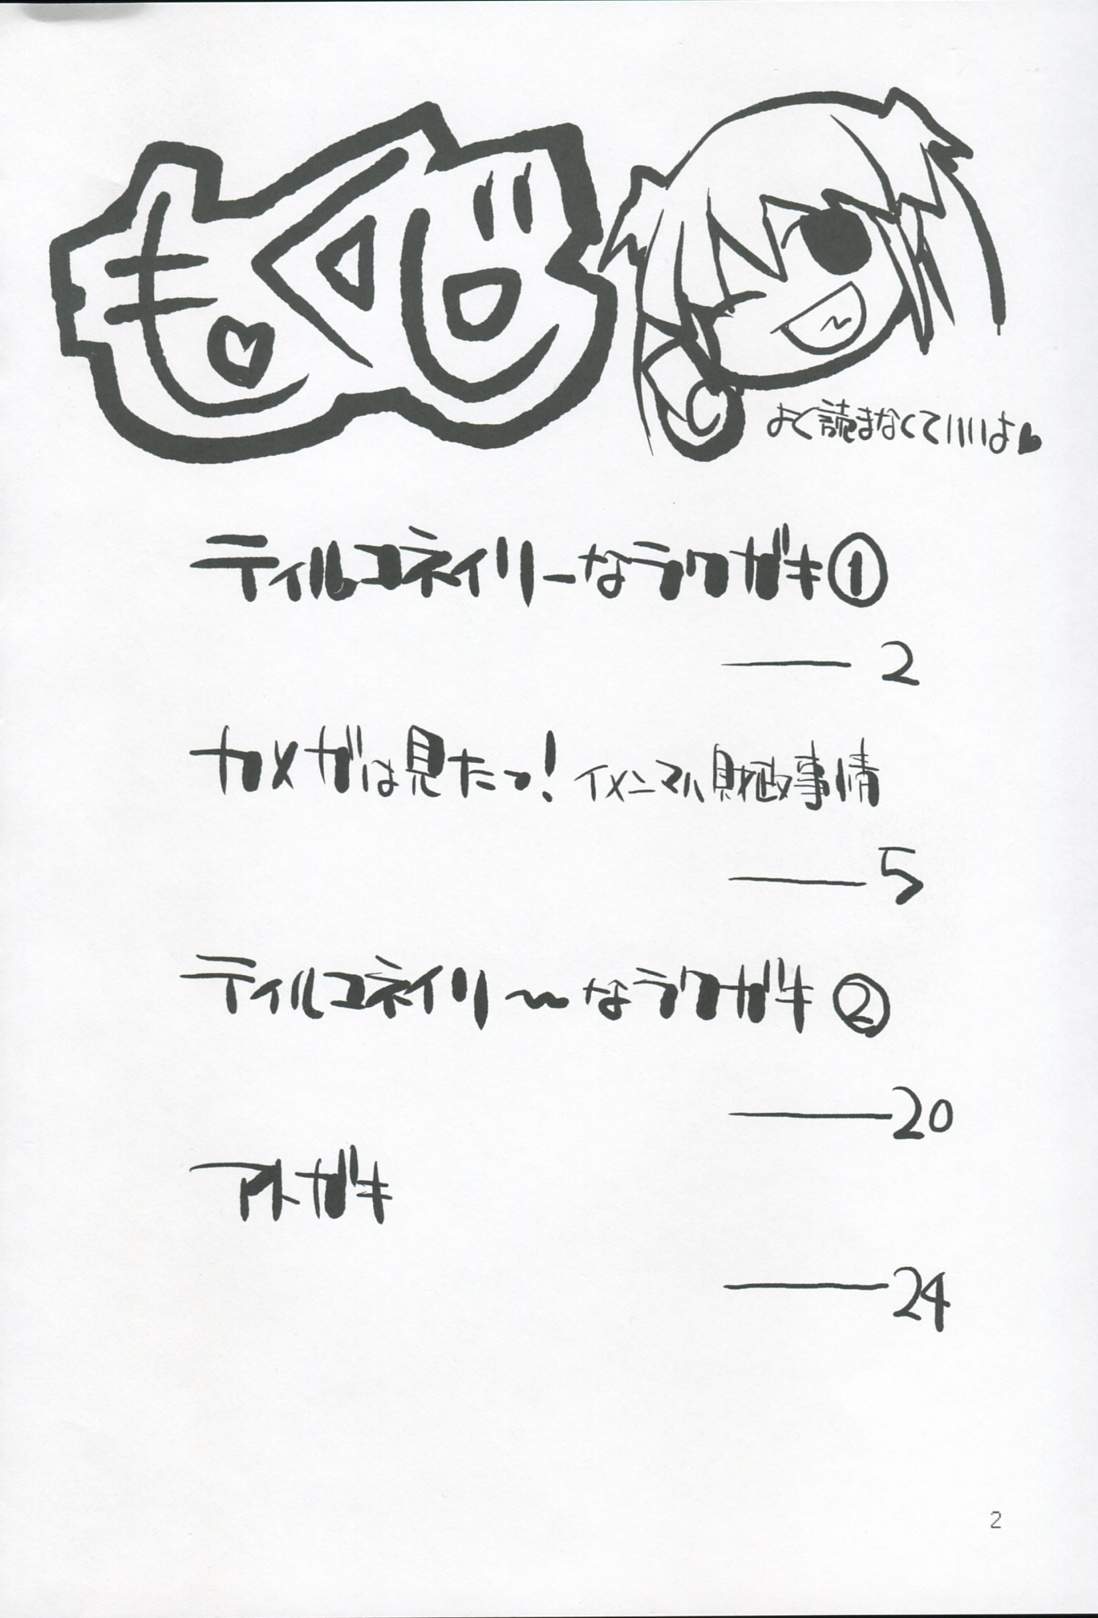 もくじ
よく読まなくていいよ♥
ティルコネイリーなラクガキ①
―― 2
カメガは見たっ! イメンマハ財政事情
―― 5
ティルコネイリ～なラクガキ②
―― 20
アトガキ
―― 24
2